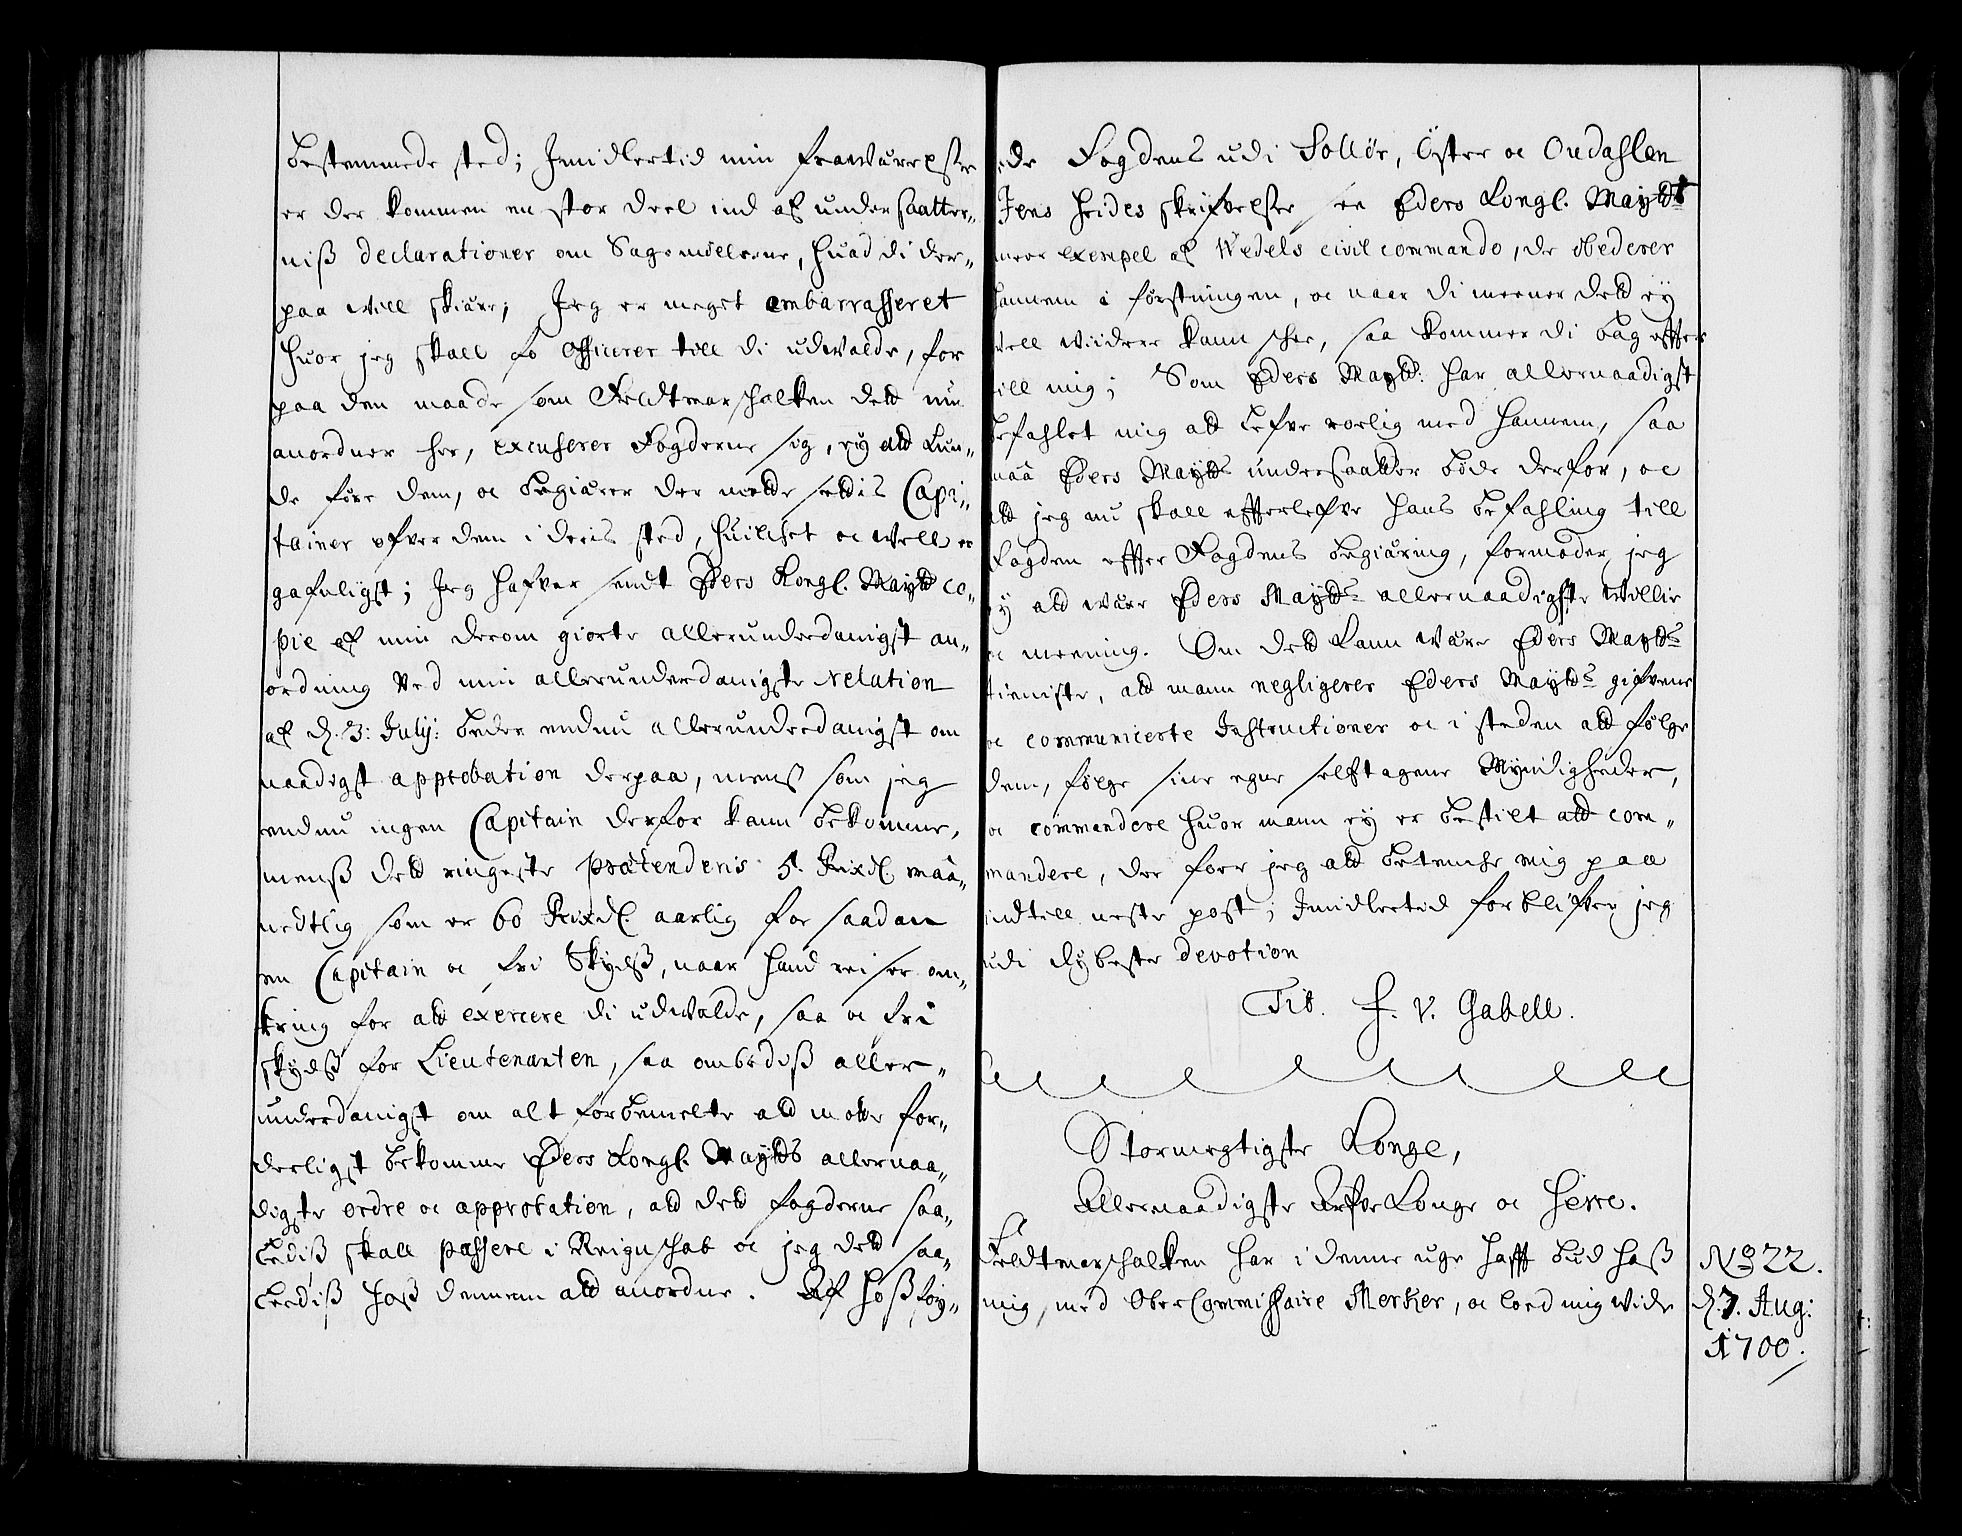 bestemmede sted; Imidlertid min frawærelse
er der kommen en stor deel ind af undersaatter-
niß declarationer om Sagemøllerne, huad di der-
paa will skiære; Jeg er meget embarrasseret
huor jeg skall fo officerer till di udwalde, for
paa den maade som Feldtmarschalken deld nu
anordner her, excuserer Fogderne sig, ey ald kun-
de føre dem, oc begiærer der melde settis Capi-
tainer ofver dem i deris sted, huilchet oc well er
gafnligst; Jeg hafver sendt Eders Kongl. Mayld co-
pie af min derom giorte allerunderdanigst an-
ordning Ved min allerunderdanigste Relation
af d. 3: July: beder endnu allerunderdanigst om
naadigst approbation derpaa, menß som jeg
endnu ingen Capitain derfor kand bekomme,
menß deld ringeste prætenderis 5. Rixdl. maa-
nedtlig som er 60 Rixdl aarlig for saadan
en Capitain oc fri Skydß, naar hand reiser om-
kring for ald exercere di udwalde, saa oc fri
skydß for Lieutenanten, saa ombedeß aller-
underdanigst om alt forbemelte ald motte for-
derligst bekomme Eders Kongl. Maylds allernaa-
digste ordre oc approbation, ald deld fogderne saa-
lediß skall passere i Reignschab oc jeg deld saa-
lediß haß dennem ald anordne. Af hoßføy-
ede Fogdens udi Sollør, Öster oc Oudahlen
Jens Heides skrifvelse see Eders Kongl. Mayldt
meer exempel af Wedels civil commando, de obederer
hannem i førstningen, oc naar di meener deld ey
vell viidere kann schee, saa kommer di bag effter
till mig; Som Eders Mayld: har allernaadigst
befahlet mig ald lefve roelig med hannem, saa
maa Eders Maylds undersaatter bøde derfor, oc
ald jeg nu skall efterlefve hans befahling till
Fogden effter Fogdens begiæring, formoder jeg
ey ald være Eders Maylds allernaadigste Villie
oc meening. Om deld kann wære Eders Maylds
tieniste, ald mann negligerer Eders Maylds gifvene
oc communicerte Instructioner oc i steden ald følge
dem, følge sine egne selftagene Myndigheder,
oc commandere huor mann ey er bestilt ald com-
mandere, der foer jeg ald betenche mig paa
indtill neste post; Imidlertid forblifver jeg
udi dybeste devotion
Tit. F. V. Gabell.
Stormegtigste Konge,
Allernaadigste ArfveKonge oc Herre.
Feldtmarschalken har i denne uge hafft bud haß
mig, med OberCommissaire Merker, oc loed mig vide
No 22.
d. 7. Aug:
1700.